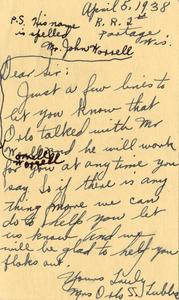 April 5, 1938
R.R. 2nd
Portage
Wis.
P.S. His name
is spelled
Mr. John Worrell
Dear Sir:
Just a few lines to
let you know that
Orlo talked with Mr
Worrell and he will work
for you at any time you
say. So if there is any
thing more we can
do to help you let
us know and we
will be glad to help you
folks out.
Yours Truly
Mrs Orlo S.